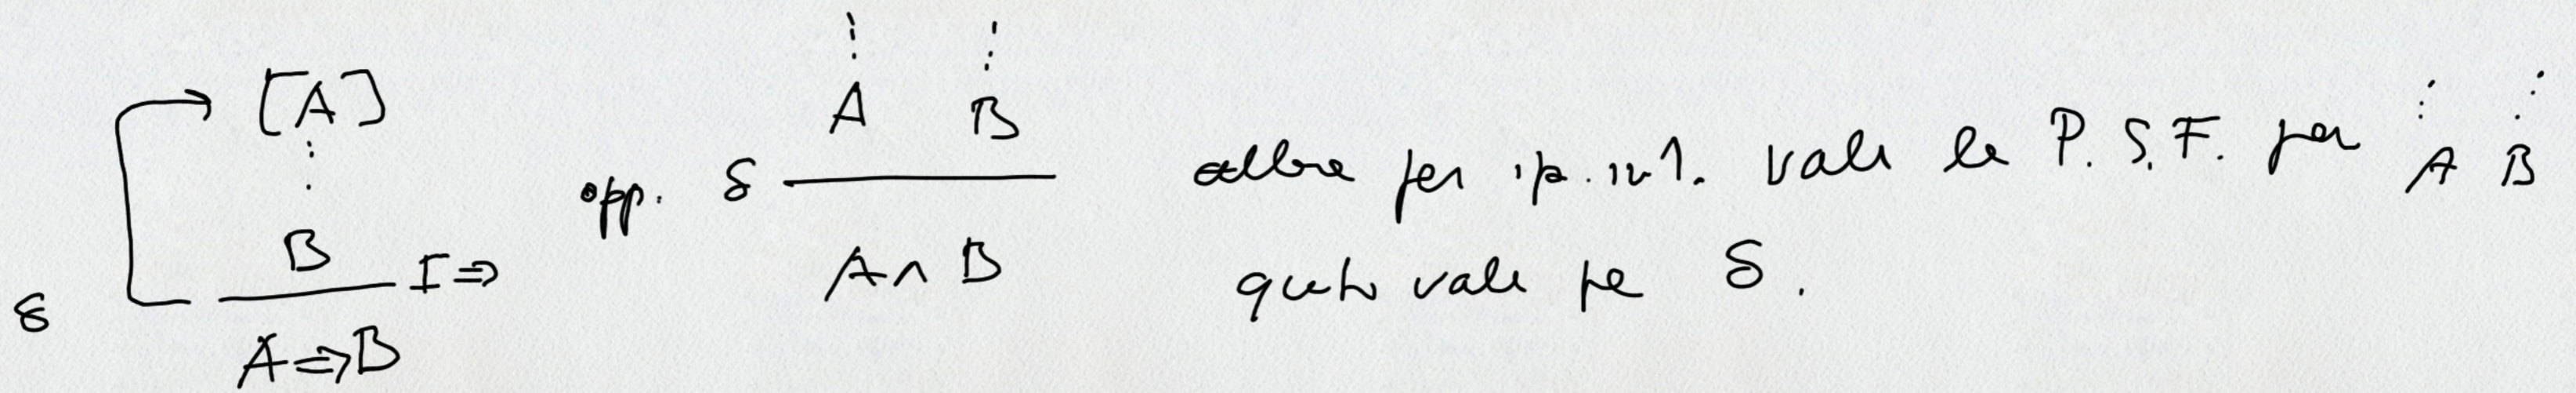 [A]
⋮
B
δ ――― I⇒
A⇒B
opp.
⋮ ⋮
A B
δ ―――
A∧B
allora per ip. ind. vale la P.S.F. per A B
questo vale per δ.